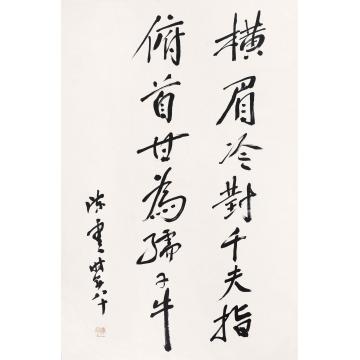 横眉冷對千夫指
俯首甘為孺子牛
陈雲時年八十